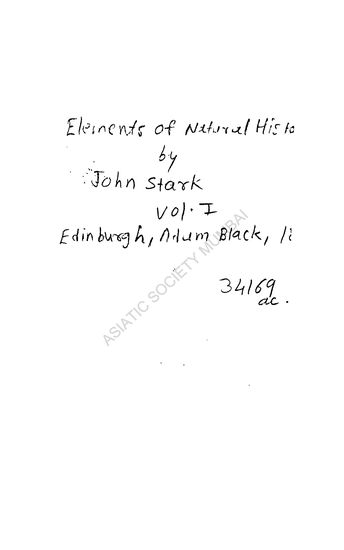 Elements of Natural Histo
by
John Stark
Vol. I
Edinburgh, Adam Black, 
34169
ac.
ASIATIC SOCIETY MUMBAI